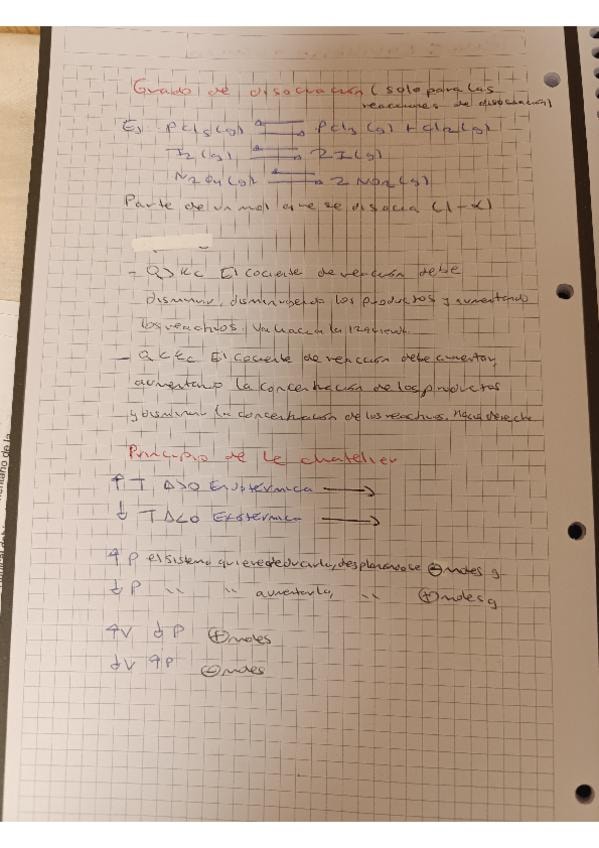 Grado de disociación (solo para las
reacciones de disociación)
Ej PCl5(g) ⇄ PCl3(g) + Cl2(g)
I2(g) ⇄ 2I(g)
N2O4(g) ⇄ 2NO2(g)
Parte de un mol que se disocia (1-α)
- Q>Kc El cociente de reacción debe
disminuir, disminuyendo los productos y aumentando
los reactivos. Va hacia la izquierda.
- Q<Kc El cociente de reacción debe aumentar,
aumentando la concentración de los productos
y disminuir la concentración de los reactivos. Hacia derecha
Principio de Le Chatelier
↑ T Δ>0 Endotérmica →
↓ T Δ<0 Exotérmica →
↑ P el sistema quiere reducirla, desplazandose ⊖ moles g
↓ P " " aumentarla, " ⊕ moles g
↑V ↓P ⊕ moles
↓V ↑P ⊖ moles